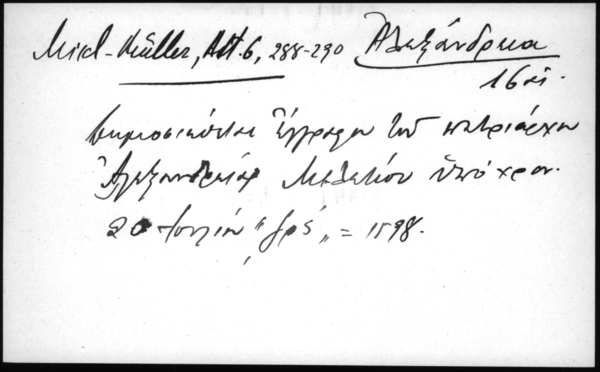 Mikl-Müller, Akt. 6, 288-290 Ἀλεξάνδρεια
16 αἰ.
Δημοσιεύεται ἔγγραφον τοῦ πατριάρχου
Ἀλεξανδρείας Μελετίου ὑπὸ χρον.
20 Ἰουλίου „ζρς΄„ = 1598.